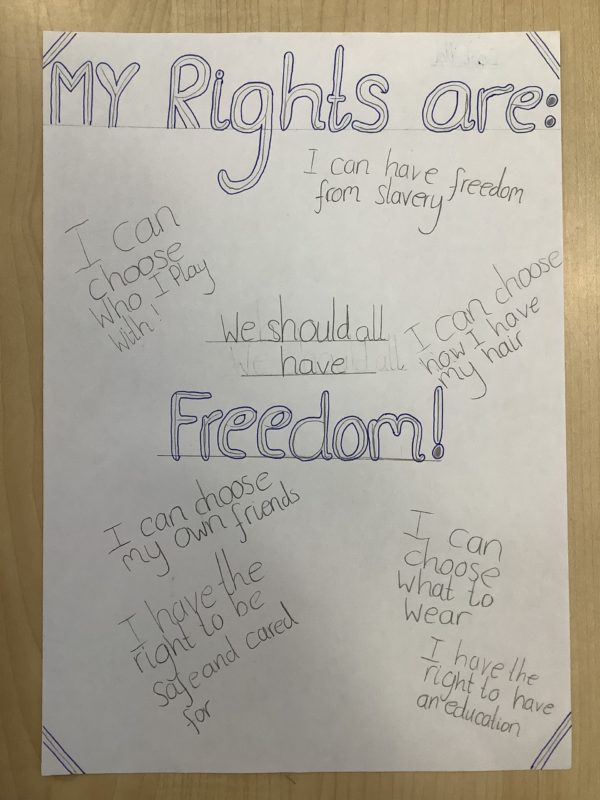 MY Rights are:
I can have freedom
from slavery
I can
choose
who I Play
with!
We should all
have
I can choose
how I have
my hair
Freedom!
I can choose
my own friends
I can
choose
what to
wear
I have the
right to be
safe and cared
for
I have the
right to have
an education